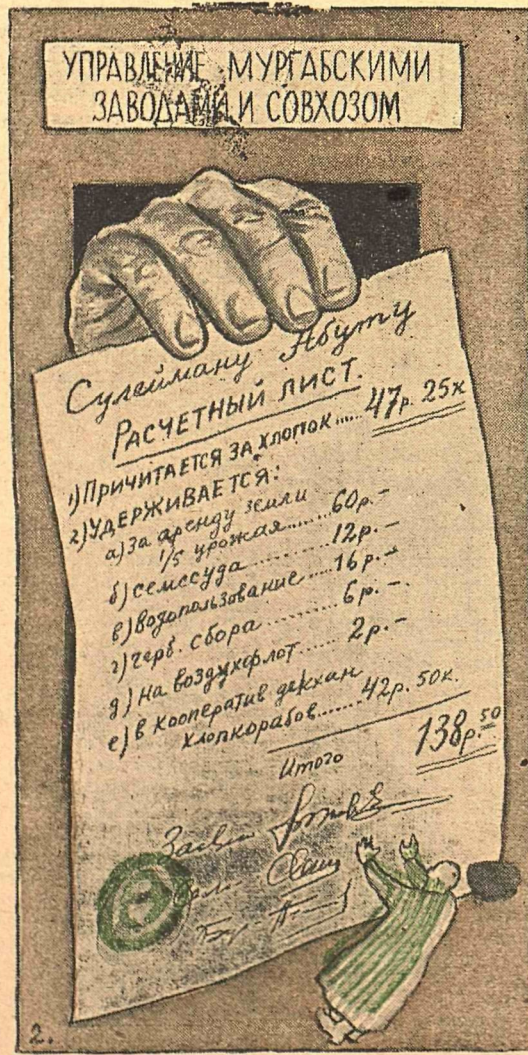 УПРАВЛЕНИЕ МУРГАБСКИМИ
ЗАВОДАМИ И СОВХОЗОМ
Сулейману Абуту
РАСЧЕТНЫЙ ЛИСТ.
1) ПРИЧИТАЕТСЯ ЗА ХЛОПОК ..... 47р. 25к
2) УДЕРЖИВАЕТСЯ:
а) за аренду земли
1/5 урожая ...... 60р.-
б) семссуда ......... 12р.-
в) водопользование .... 16р.-
г) герб. сбора .......... 6р.-
д) на воздухофлот ..... 2р.-
е) в кооператив декхан
хлопкорабов ...... 42р. 50к.
Итого 138р. 50
2.